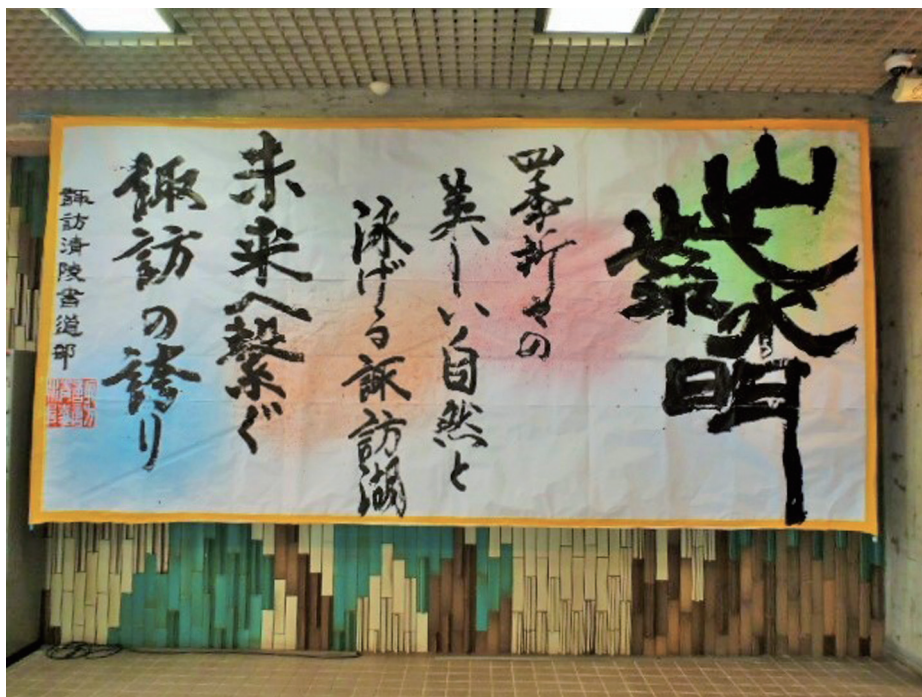 山紫水明
四季折々の
美しい自然と
泳げる諏訪湖
未来へ繋ぐ
諏訪の誇り
諏訪清陵書道部